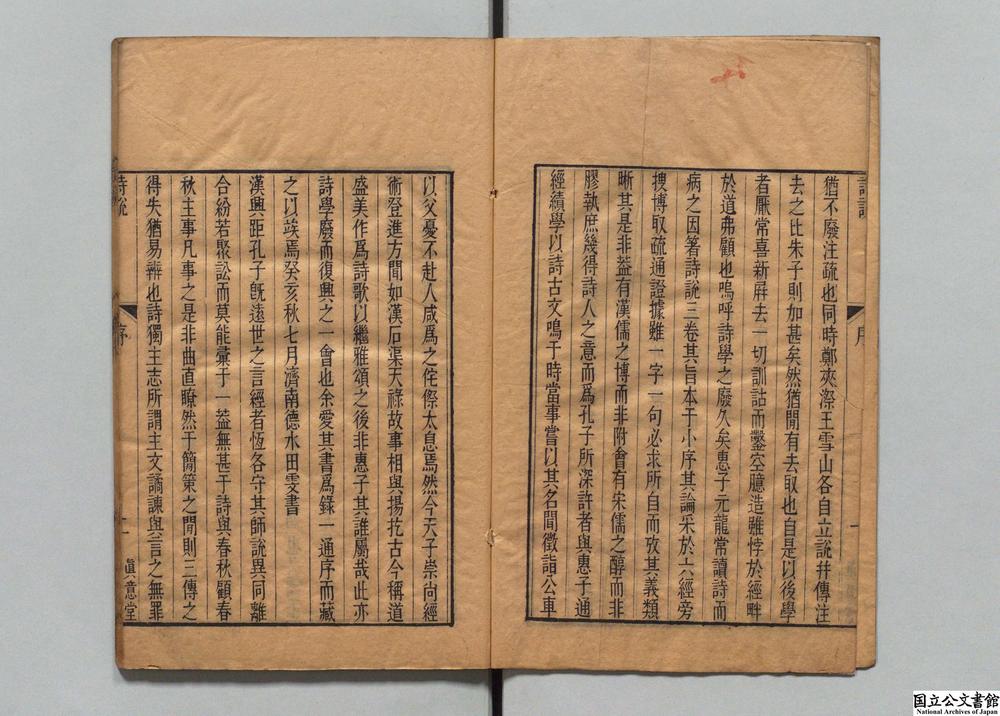 猶不廢注疏也同時鄭夾漈王雪山各自立說幷傳注
去之比朱子則加甚矣然猶閒有去取也自是以後學
者厭常喜新屛去一切訓詁而鑿空臆造雖悖於經畔
於道弗顧也嗚呼詩學之廢久矣惠子元龍常讀詩而
病之因著詩說三卷其旨本于小序其論采於六經旁
搜博取疏通證據雖一字一句必求所自而攷其義類
晰其是非蓋有漢儒之博而非附會有宋儒之醇而非
膠執庶幾得詩人之意而爲孔子所深許者與惠子通
經績學以詩古文鳴于時當事嘗以其名聞徵詣公車
以父憂不赴人咸爲之侘傺太息焉然今天子崇尚經
術登進方聞如漢石渠天祿故事相與揚扢古今稱道
盛美作爲詩歌以繼雅頌之後非惠子其誰屬哉此亦
詩學廢而復興之一會也余愛其書爲錄一通序而藏
之以竢焉癸亥秋七月濟南德水田雯書
漢興距孔子旣遠世之言經者恆各守其師說異同離
合紛若聚訟而莫能彙于一蓋無甚于詩與春秋顧春
秋主事凡事之是非曲直瞭然于簡策之閒則三傳之
得失猶易辨也詩獨主志所謂主文譎諫與言之無罪
詩說
序
一
眞意堂
国立公文書館
National Archives of Japan